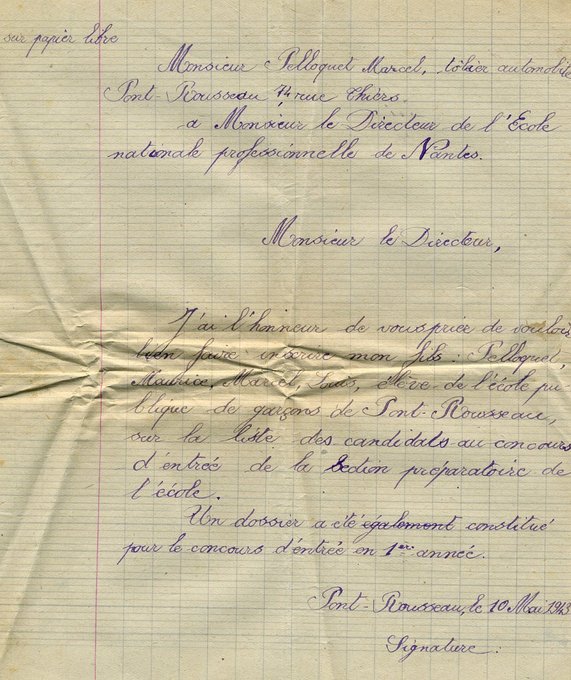 sur papier libre
Monsieur Pelloquet Marcel, tôlier automobile
Pont-Rousseau 74 rue Thiers.
a Monsieur le Directeur de l'Ecole
nationale professionnelle de Nantes.
Monsieur le Directeur,
J'ai l'honneur de vous priée de vouloir
bien faire inscrire mon fils : Pelloquet,
Maurice, Marcel, Louis, élève de l'école pu-
blique de garçons de Pont-Rousseau,
sur la liste des candidats au concours
d'entrée de la Section préparatoire de
l'école.
Un dossier a été également constitué
pour le concours d'entrée en 1ère année.
Pont-Rousseau, le 10 Mai 1943
Signature :